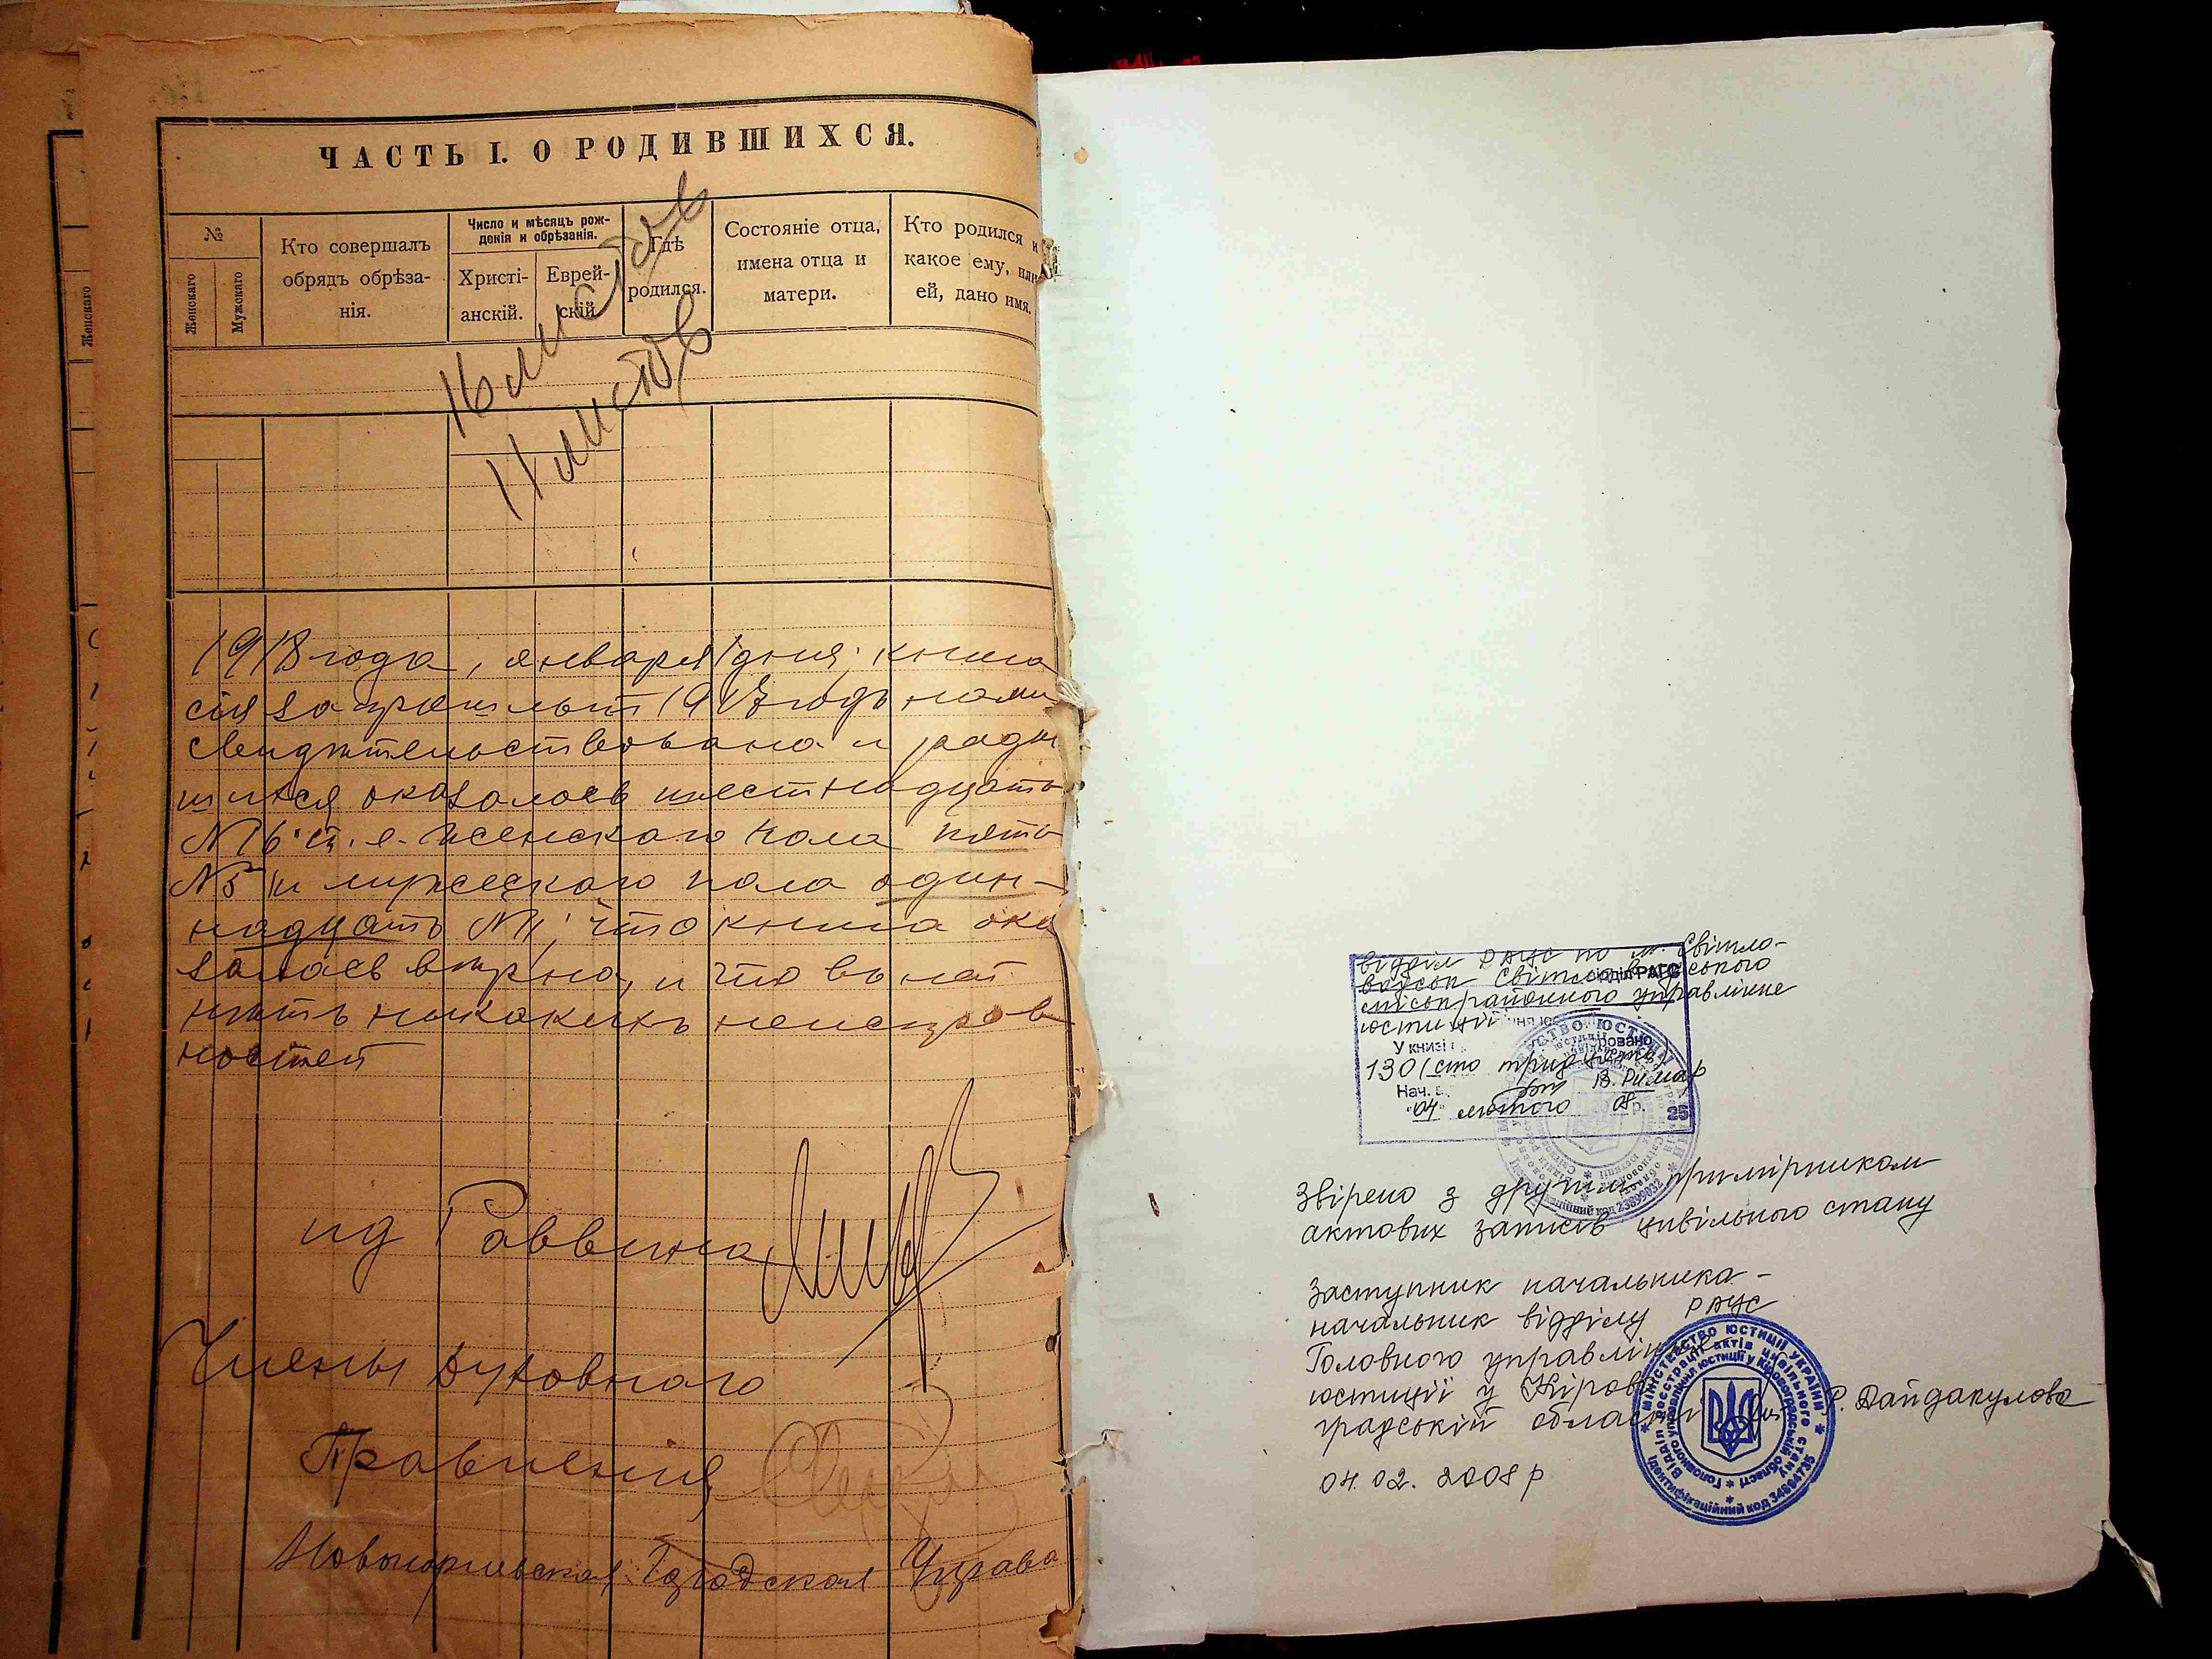 ЧАСТЬ I. О РОДИВШИХСЯ.
№
Женскаго
Мужскаго
Кто совершалъ
обрядъ обрѣза-
нія.
Число и мѣсяцъ рож-
денія и обрѣзанія.
Христі-
анскій.
Еврей-
скій
Гдѣ
родился.
Состояніе отца,
имена отца и
матери.
Кто родился и
какое ему, или
ей, дано имя.
Женскаго
16 листов
11 листов
1918 года, января 1 дня; книга
сія за прошлый 1917 годъ нами
свидѣтельствована и роди
шихся оказалось шестнадцать
N 16 т. е. женскаго пола пять
N 5 и мужескаго пола один-
надцать N 11; что книга ока
залась вѣрна, и что въ ней
нѣтъ никакихъ неисправ
ностей
ид Раввина
Члены Духовнаго
Правленія
Новогеоргіевская Городская Управа
відділ РАЦС по м. Світло-
водськ Світловодського
міськрайонного управління
юстиції
У книзі
130 (сто тридцять)
Нач. В. Римар
"04" лютого 08 р.
25
Звірено з другим примірником
актових записів цивільного стану
Заступник начальника -
начальник відділу РАЦС
Головного управління
юстиції у Кірово
градській області Р. Дайдакулова
МІНІСТЕРСТВО ЮСТИЦІЇ УКРАЇНИ
Відділ реєстрації актів цивільного стану
Головного управління юстиції у Кіровоградській області
ідентифікаційний код 34884735
04. 02. 2008 р